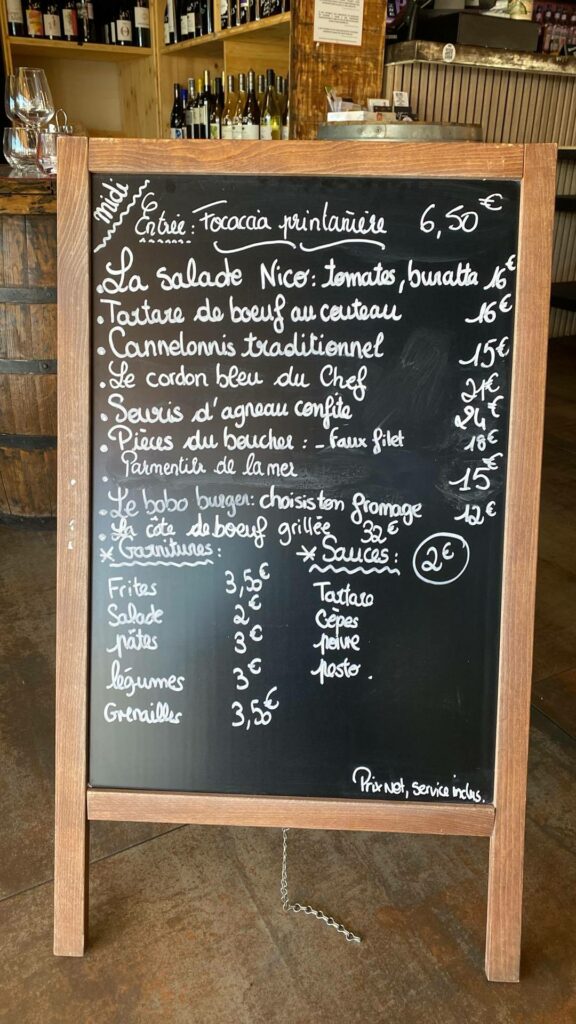 midi
Entrée: Focaccia printanière 6,50€
• La salade Nico: tomates, buratta 16€
• Tartare de boeuf au couteau 16€
• Cannelonnis traditionnel 15€
• Le cordon bleu du Chef 21€
• Souris d'agneau confite 24€
• Pièces du boucher: - Faux filet 18€
• Parmentier de la mer 15€
• Le bobo burger: choisis ton fromage 12€
• La côte de boeuf grillée 32€
* Garnitures: * Sauces: 2€
Frites 3,50€ Tartare
Salade 2€ Cèpes
pâtes 3€ poivre
légumes 3€ pesto.
Grenailles 3,50€
Prix Net, service inclus.